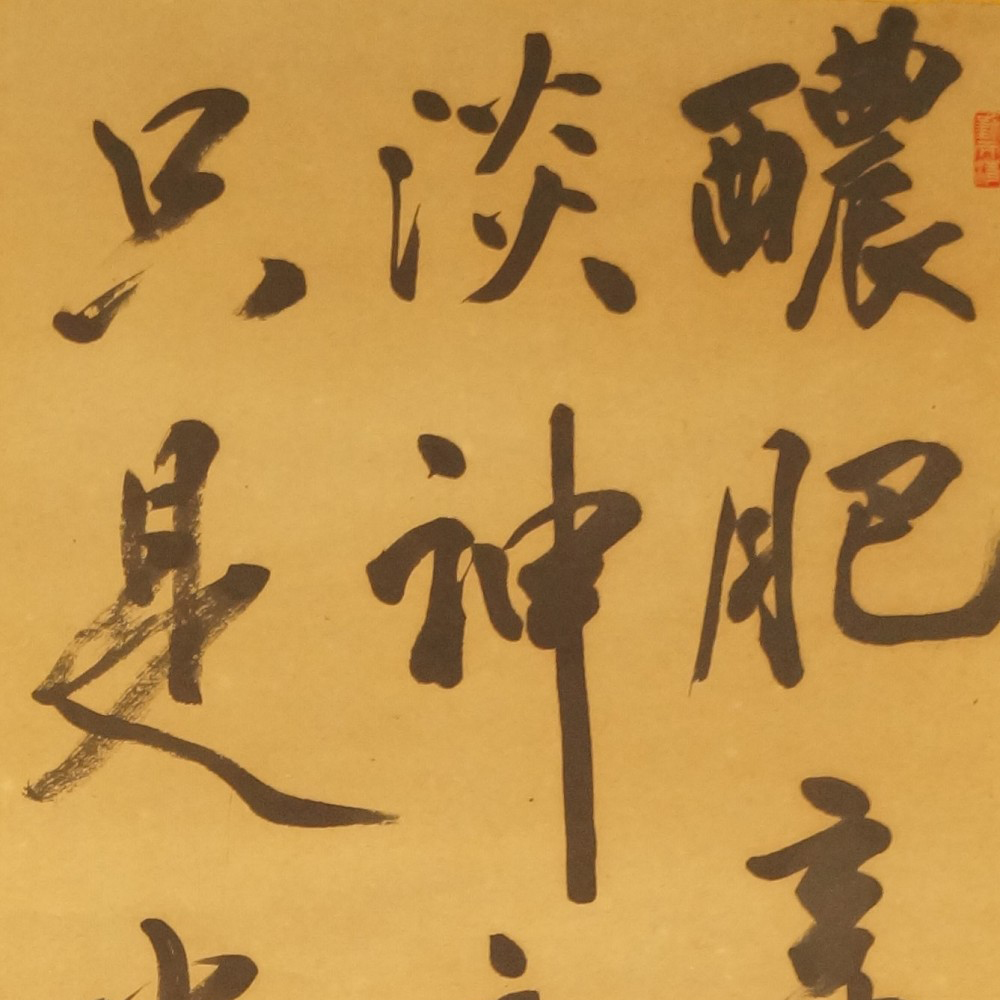 醲肥辛
淡神
只是